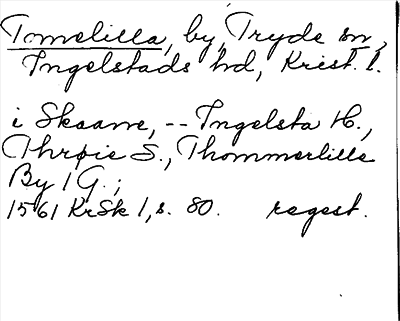 Tomelilla, by, Tryde sn,
Ingelstads hd, Krist. l.
i Skaane, -- Ingelsta H.,
Thrøie S., Thommerlille
By 1 G.;
1561 KrSk 1, s. 80. regest.